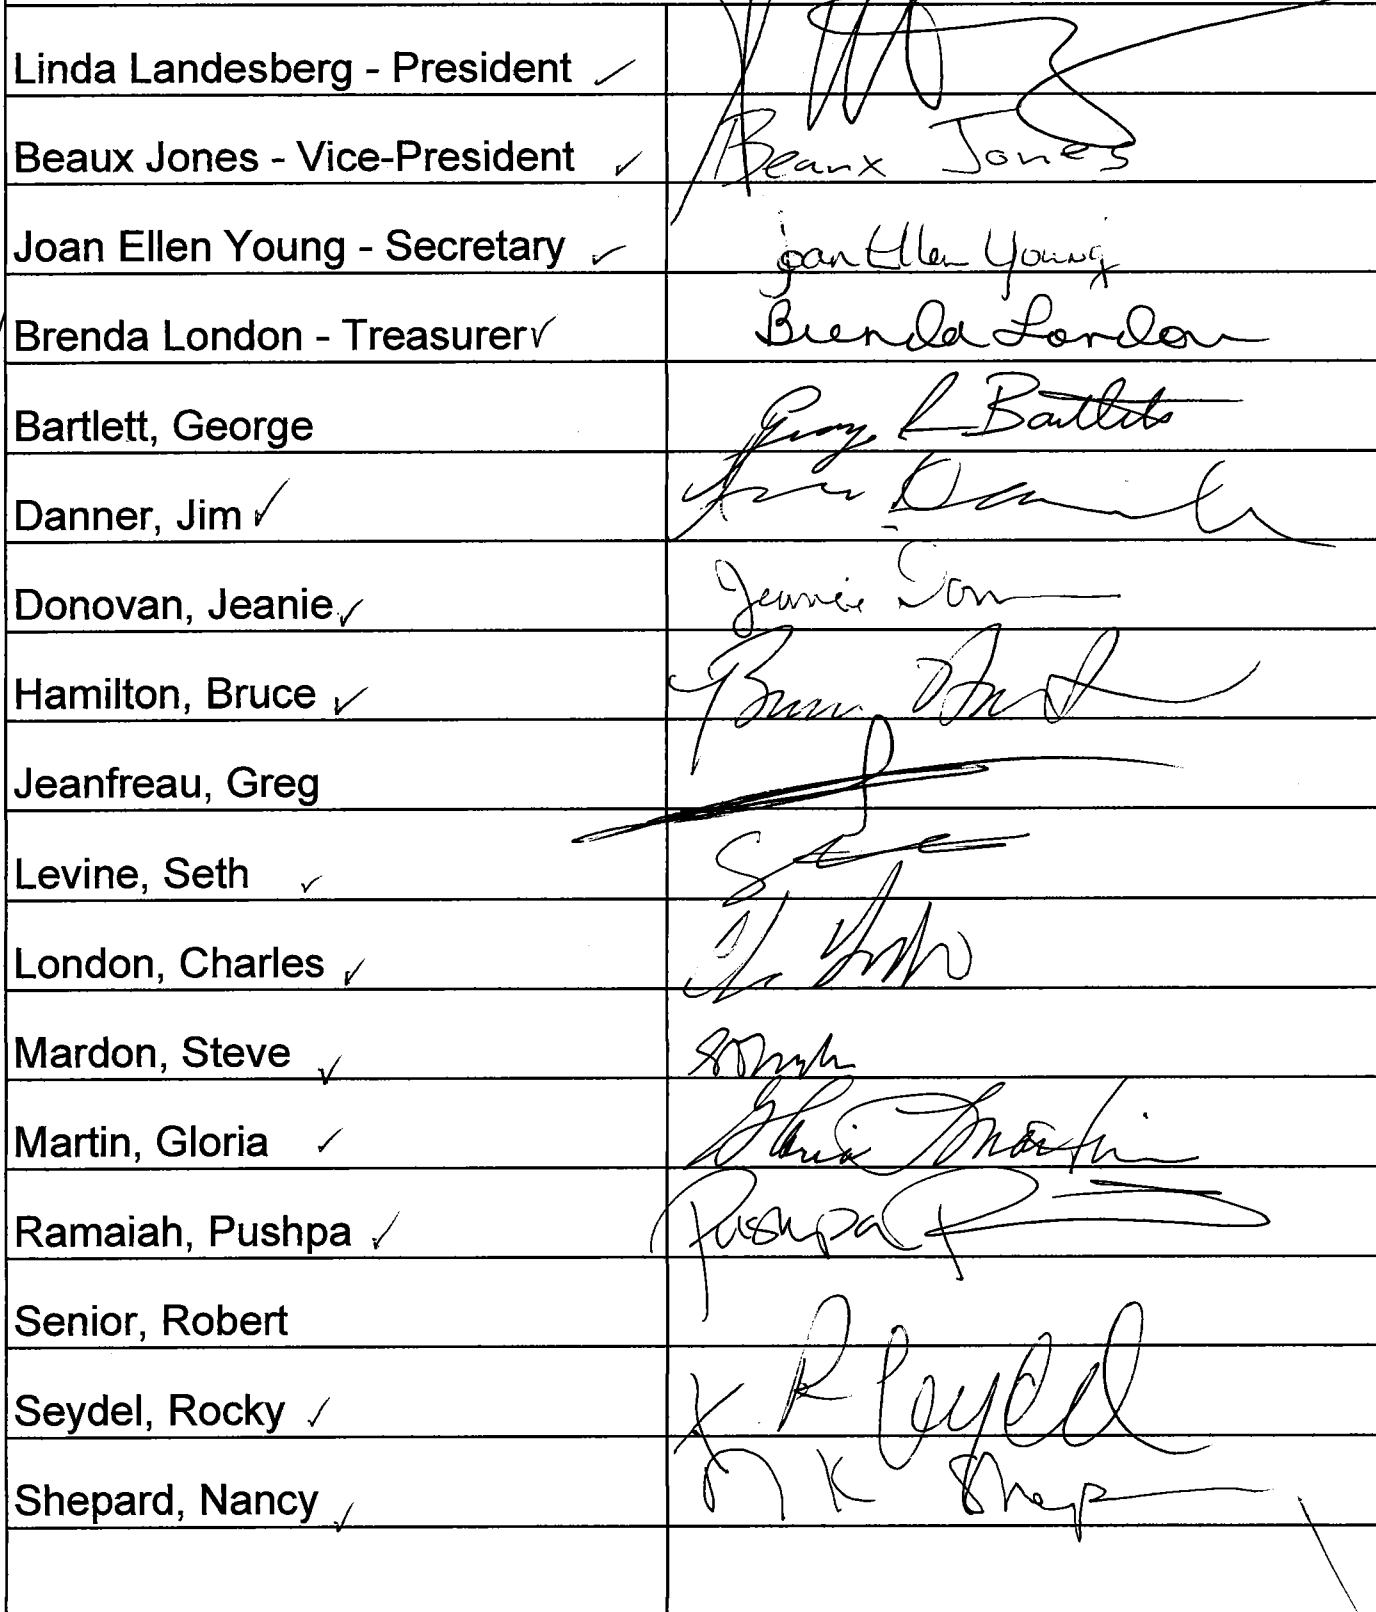 Linda Landesberg - President ✓
Beaux Jones - Vice-President ✓ Beaux Jones
Joan Ellen Young - Secretary ✓ Joan Ellen Young
Brenda London - Treasurer ✓ Brenda London
Bartlett, George George R Bartlett
Danner, Jim ✓
Donovan, Jeanie ✓ Jeanie
Hamilton, Bruce ✓ Bruce
Jeanfreau, Greg
Levine, Seth ✓
London, Charles ✓
Mardon, Steve ✓
Martin, Gloria ✓ Gloria Martin
Ramaiah, Pushpa ✓ Pushpa R
Senior, Robert
Seydel, Rocky ✓ X R Seydel
Shepard, Nancy ✓ N K Shep